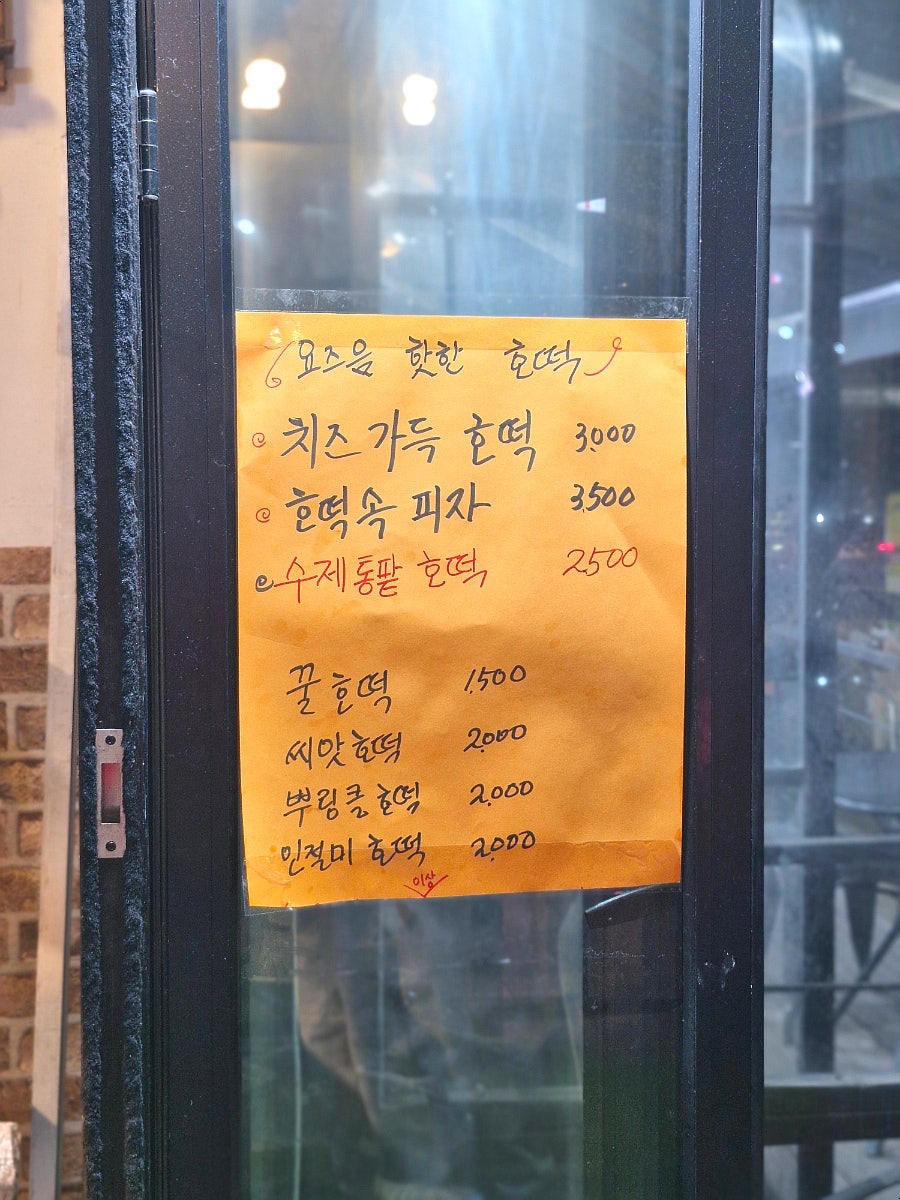 요즈음 핫한 호떡
치즈가득 호떡 3.000
호떡속 피자 3.500
수제통팥 호떡 2500
꿀호떡 1.500
씨앗호떡 2.000
뿌링클호떡 2.000
인절미 호떡 2.000
이상